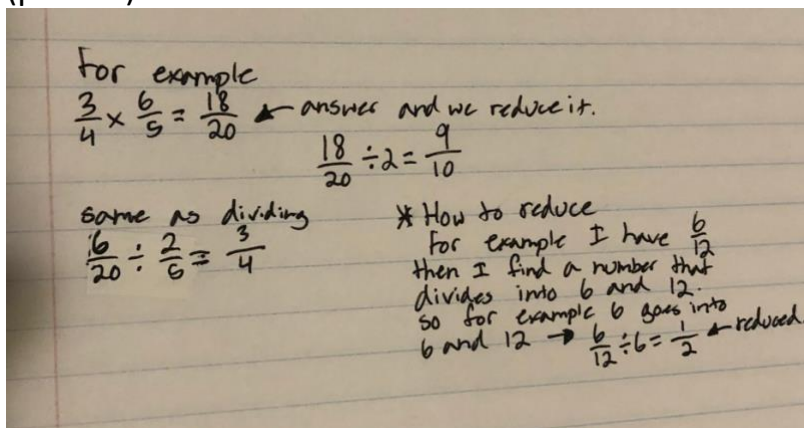 For example
3/4 × 6/5 = 18/20 ← answer and we reduce it.
18/20 ÷ 2 = 9/10
same as dividing
6/20 ÷ 2/5 = 3/4
* How to reduce
For example I have 6/12
then I find a number that
divides into 6 and 12.
so for example 6 goes into
6 and 12 → 6/12 ÷ 6 = 1/2 ← reduced.